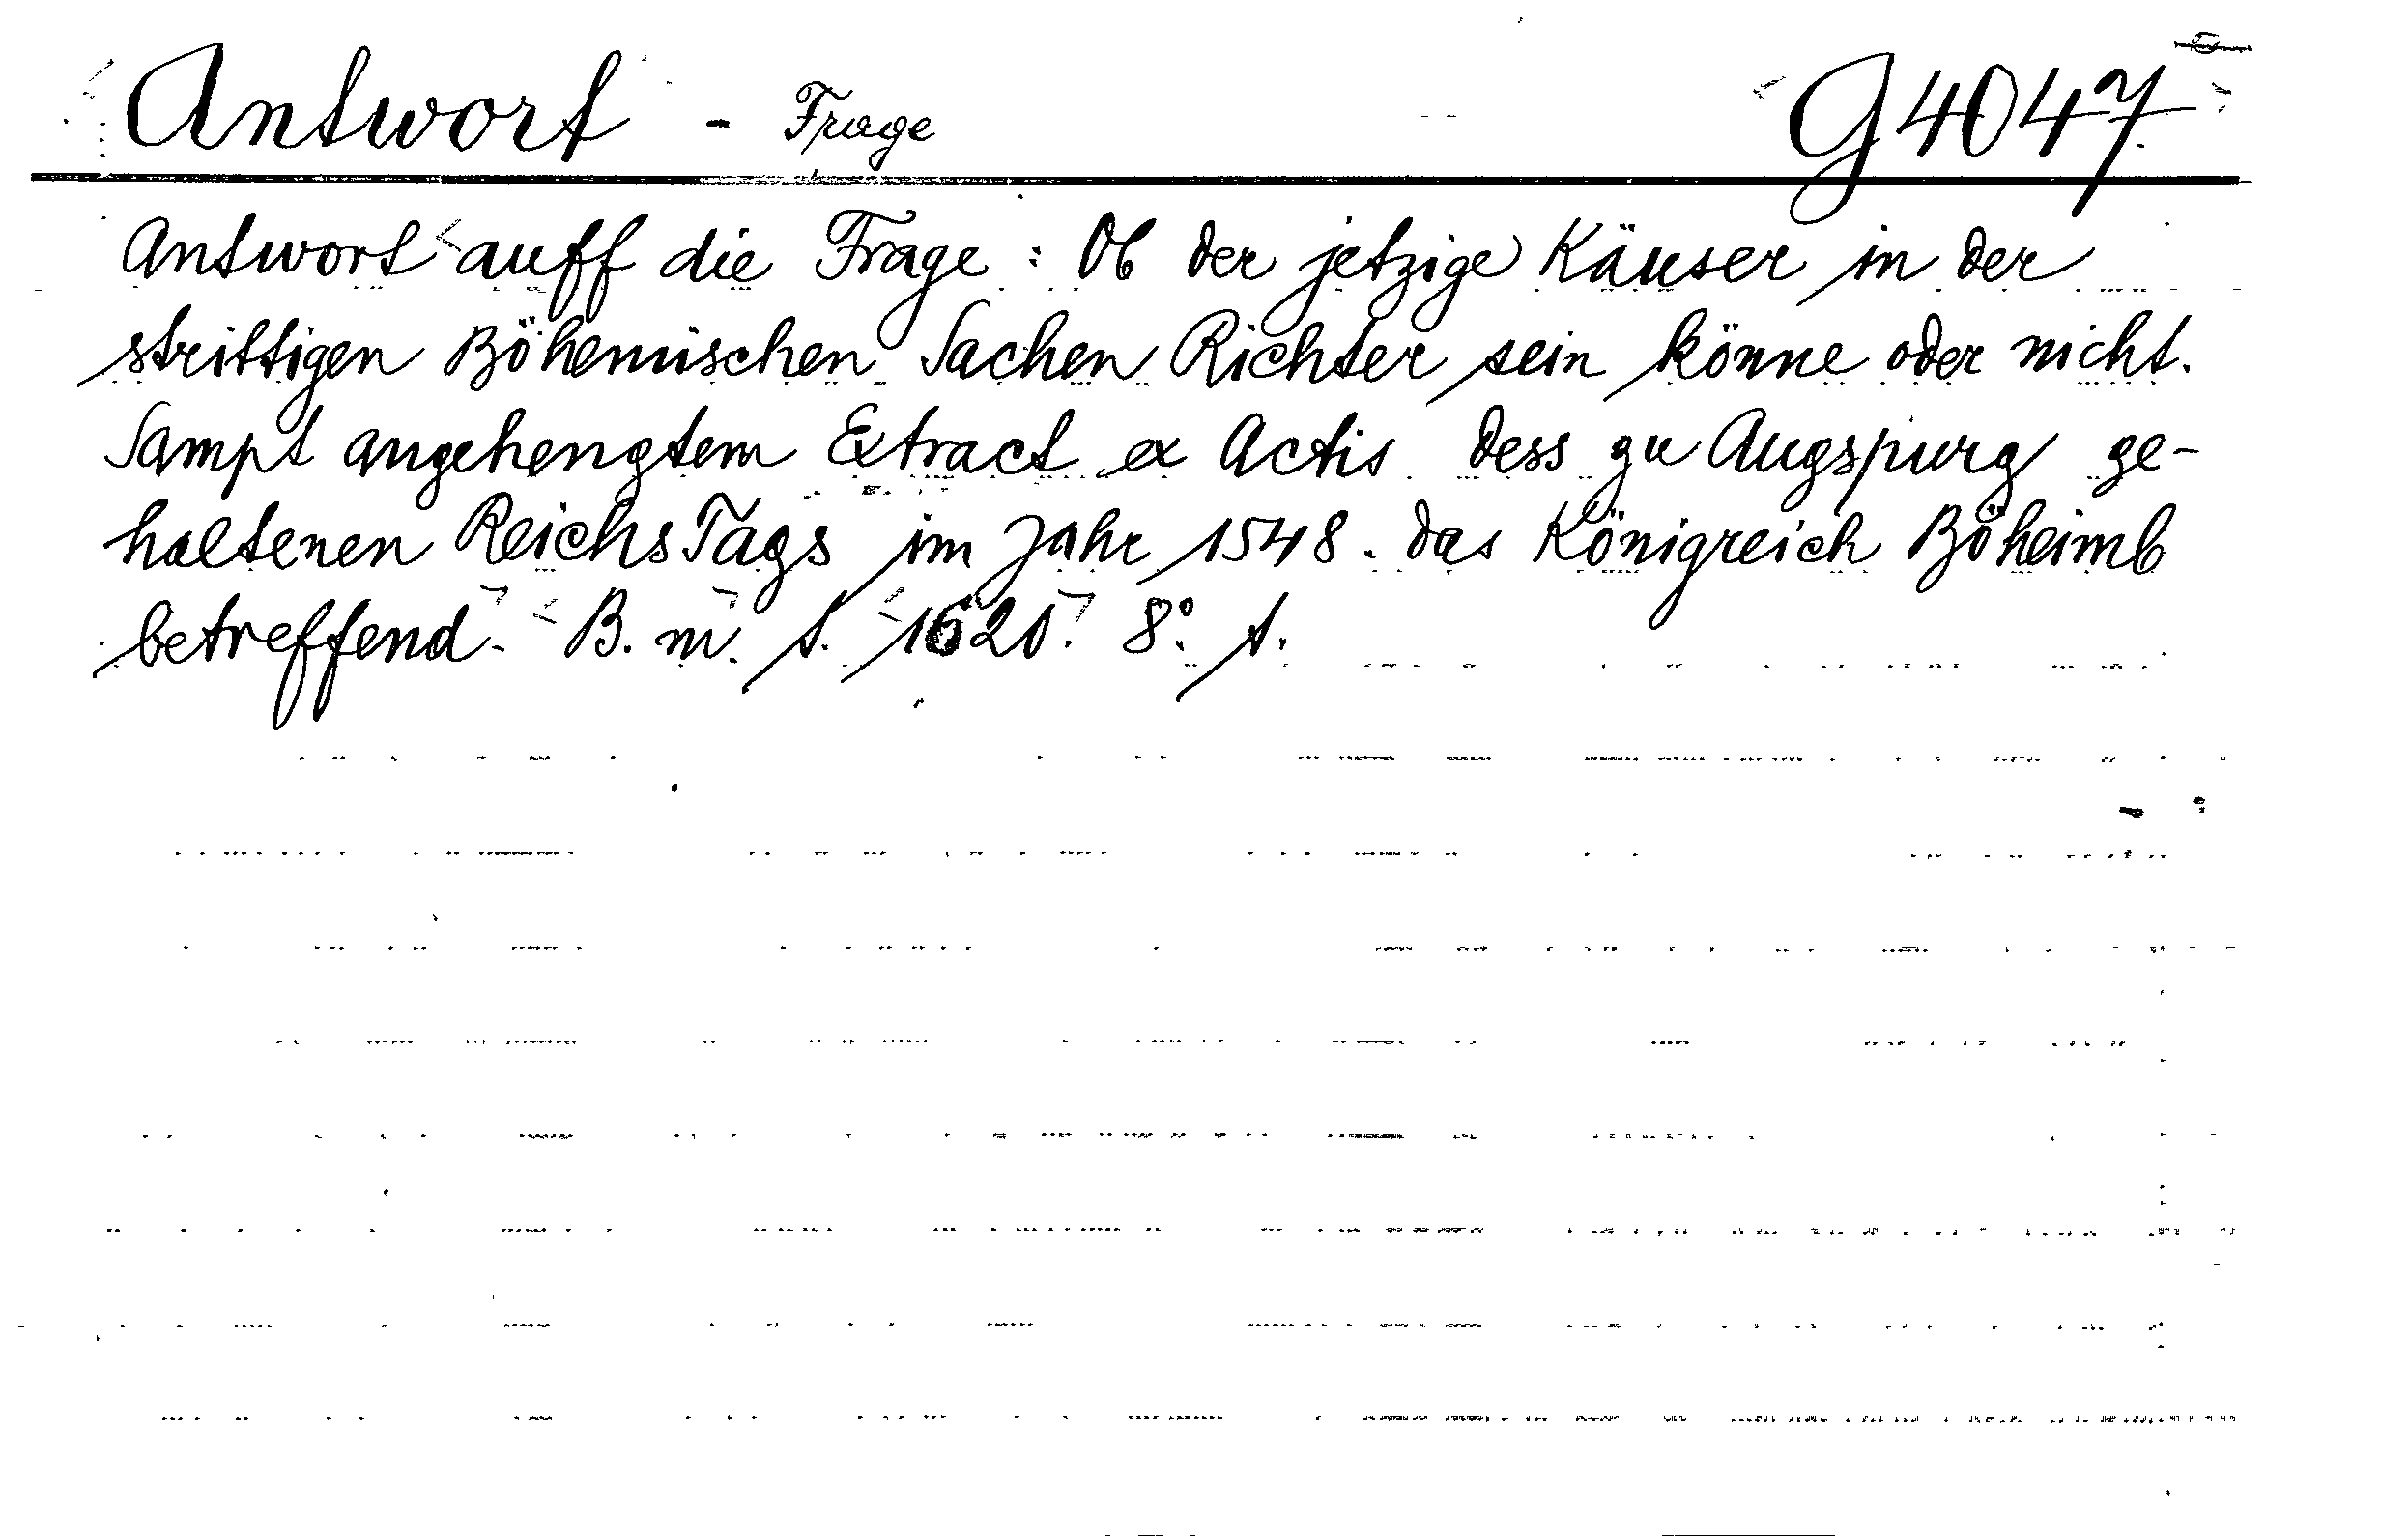 Antwort - Frage G4047
Antwort auff die Frage: Ob der jetzige Käuser in der
strittigen Böhemischen Sachen Richter sein könne oder nicht.
Sampt angehengtem Extract ex Actis dess zu Augspurg ge-
haltenen ReichsTags im Jahr 1548. das Königreich Böheimb
betreffend. B. m. s. 1620. 8°. s.